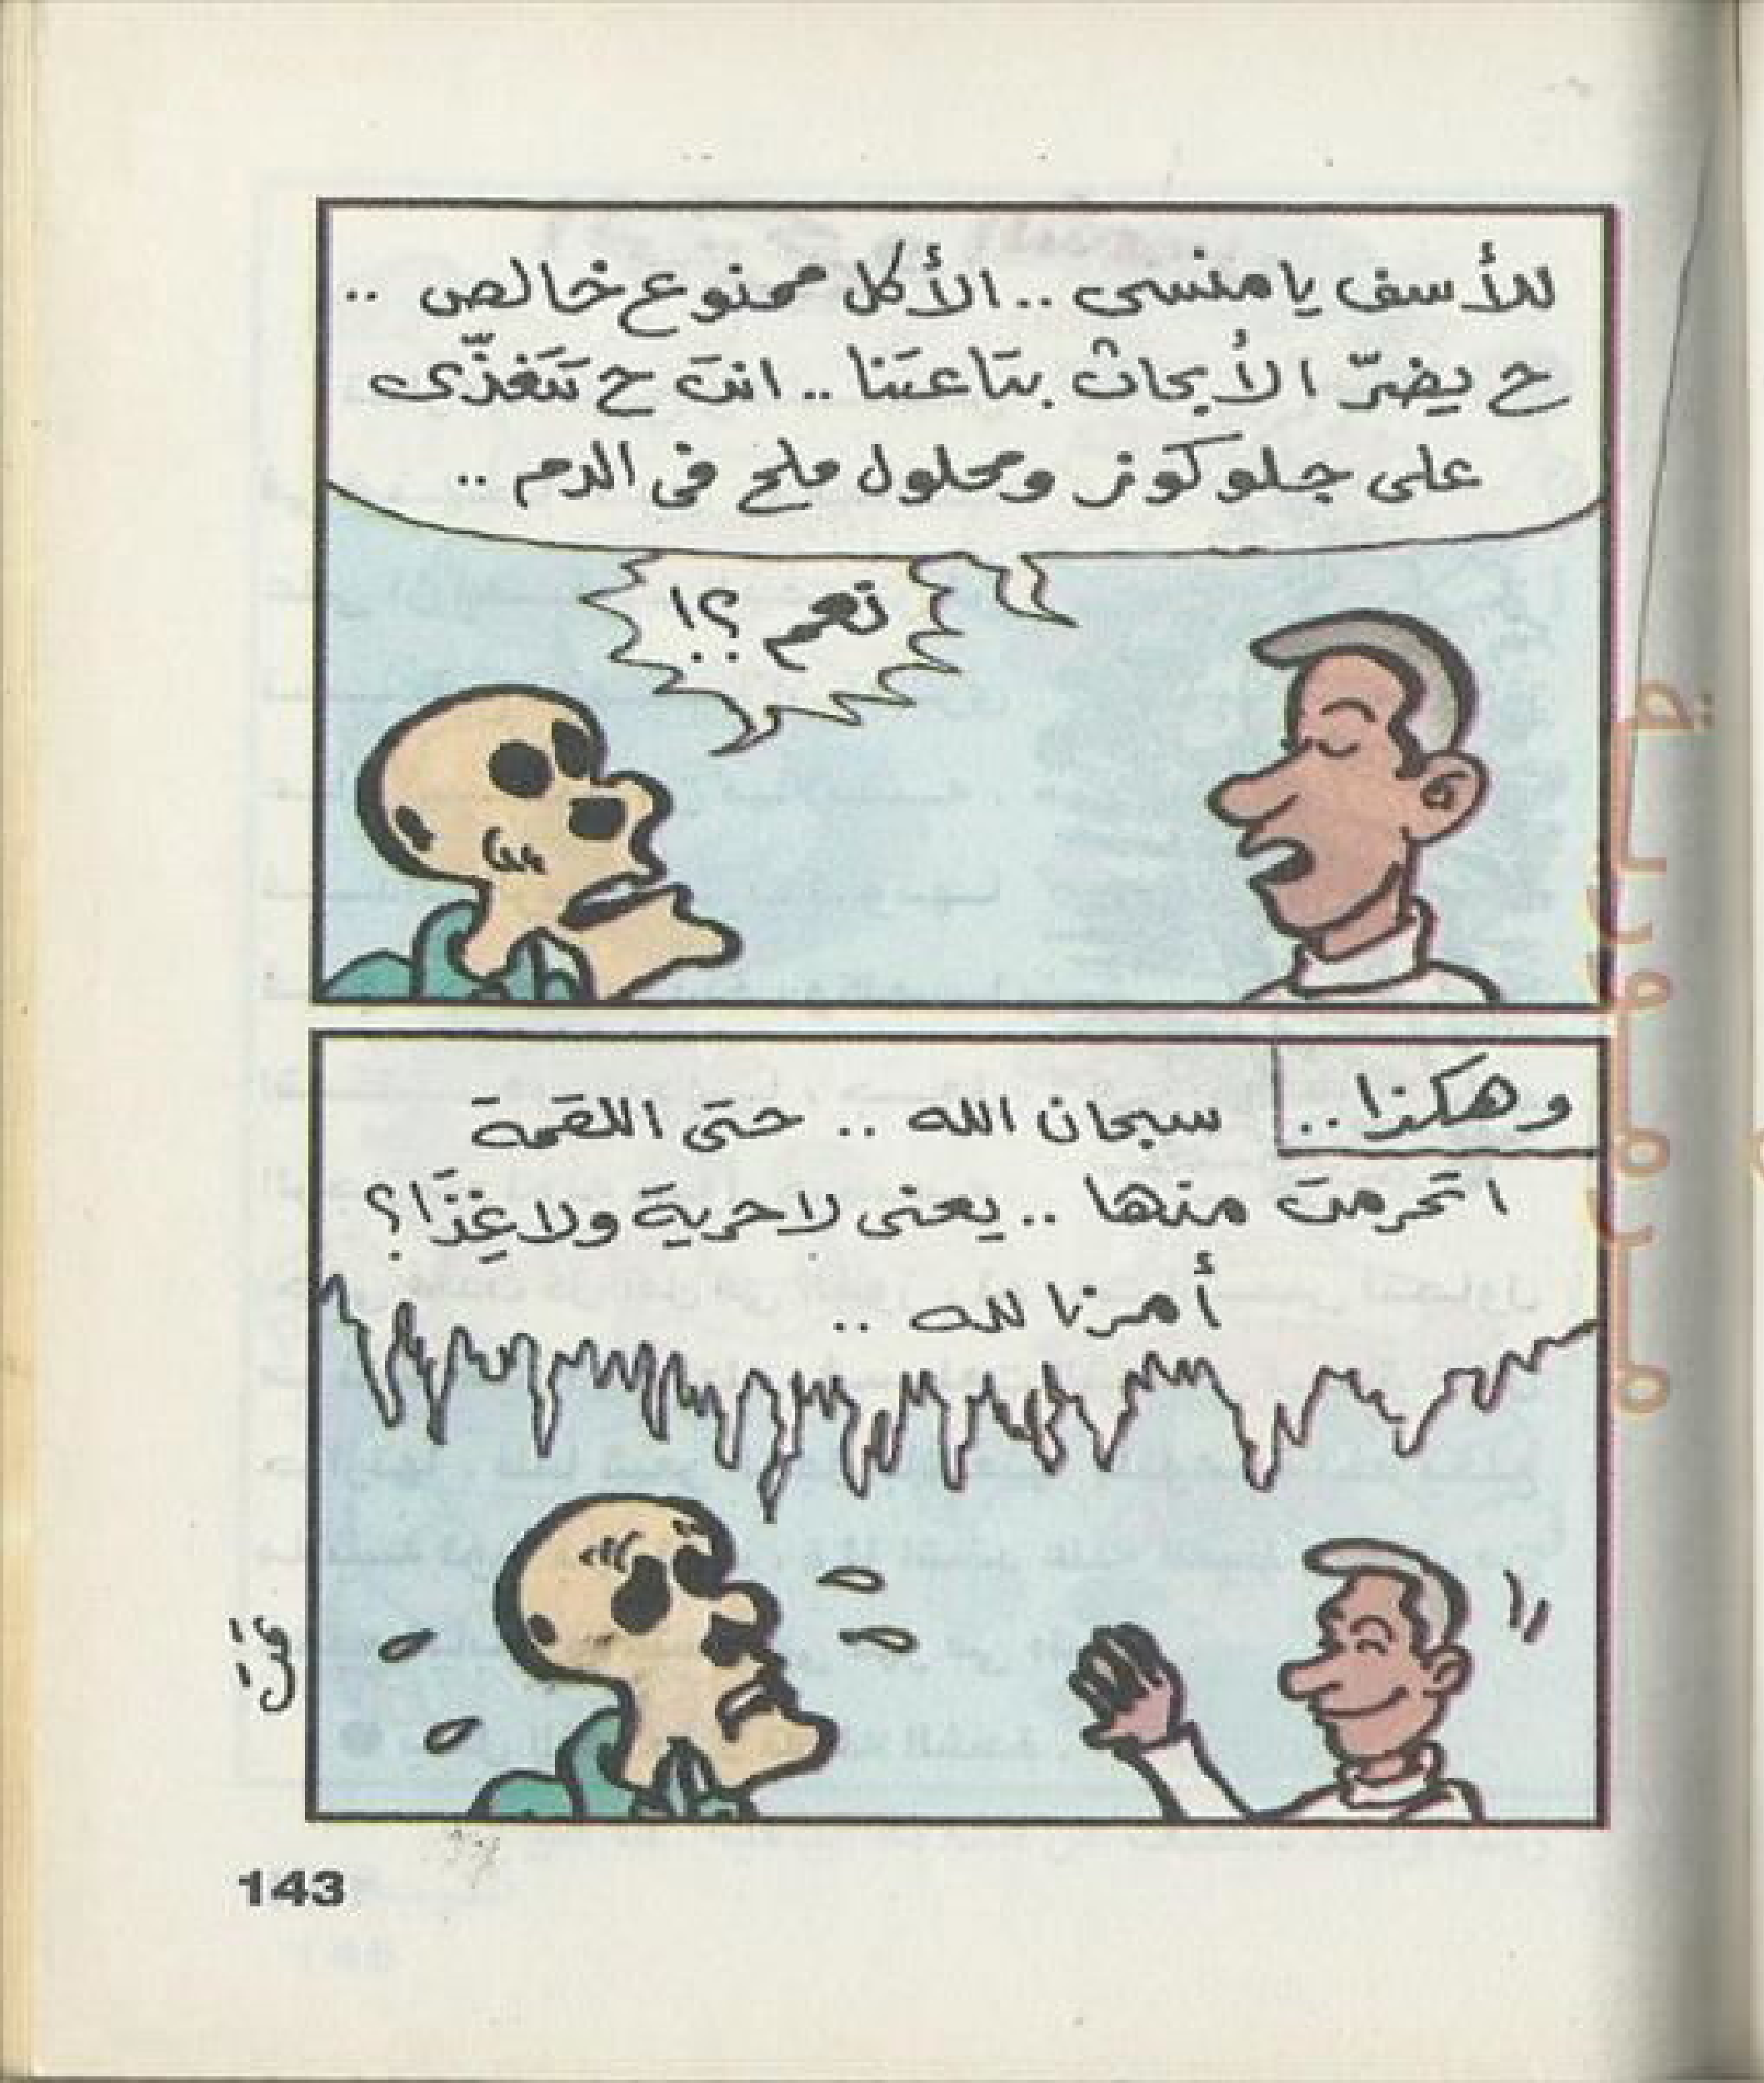 للأسف يا منسى .. الأكل ممنوع خالص ..
ح يضرّ الأبحاث بتاعتنا .. انت ح تتغذّى
على جلوكوز ومحلول ملح فى الدم ..
نعم ؟!
وهكذا ..
سبحان الله .. حتى اللقمة
اتحرمت منها .. يعنى لا حرية ولا غِذَا ؟
أمرنا لله ..
143